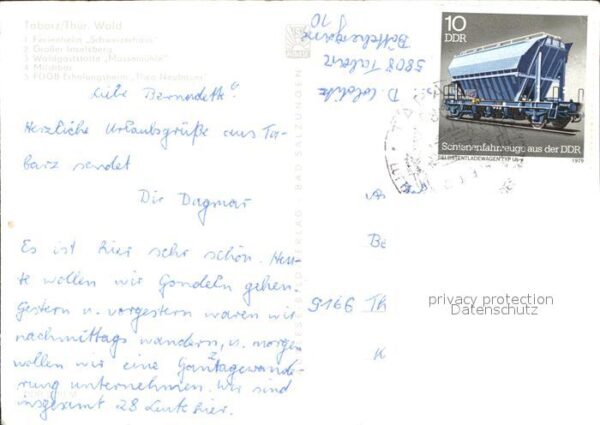 Tabarz/Thür. Wald
1 Ferienheim „Schweizerhaus"
2 Großer Inselsberg
3 Waldgaststätte „Massemühle"
4 Milchbar
5 FDGB-Erholungsheim „Theo Neubauer"
Liebe Bernadette!
Herzliche Urlaubsgrüße aus Ta-
barz sendet
Dir Dagmar
Es ist hier sehr schön. Heu-
te wollen wir Gondeln gehen.
Gestern u. vorgestern waren wir
nachmittags wandern, u. morgen
wollen wir eine Ganztagewande-
rung unternehmen. Wir sind
insgesamt 28 Leute hier.
VERLAG · BAD SALZUNGEN
D.
5808 Tabarz
10
DDR
Schienenfahrzeuge aus der DDR
SELBSTENTLADEWAGEN TYP
1979
An
Be
9166 Th
K
privacy protection
Datenschutz